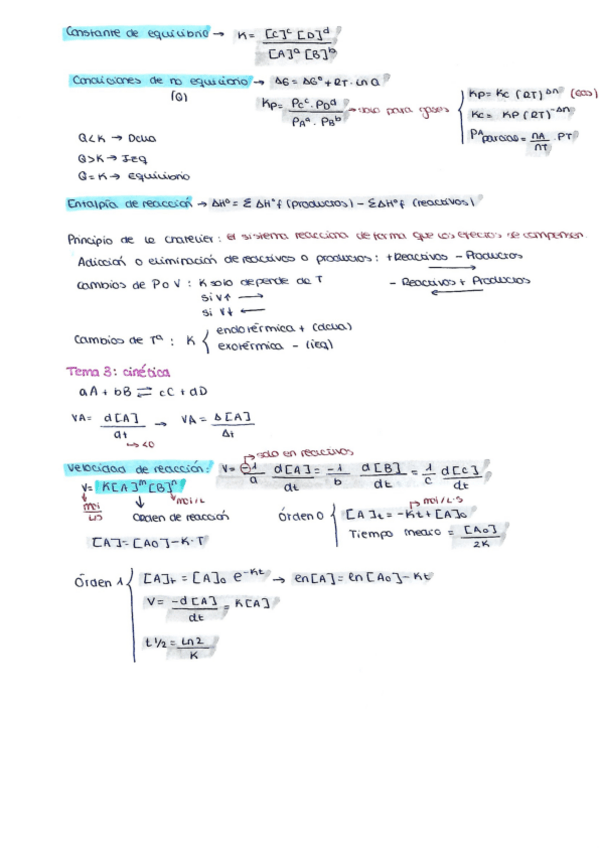 Constante de equilibrio → K = [C]ᶜ [D]ᵈ / [A]ᵃ [B]ᵇ
Condiciones de no equilibrio → ΔG = ΔGº + RT · Ln Q
(Q)
Kp = Pcᶜ · PDᵈ / PAᵃ · PBᵇ → solo para gases
Kp = Kc (RT)^Δn
Kc = KP (RT)^-Δn
PA parcial = nA / nT · PT
Q<K → Dcha
Q>K → Izq
Q = K → equilibrio
Entalpía de reacción → ΔHº = Σ ΔHºf (productos) – ΣΔHºf (reactivos)
Principio de Le Chatelier: el sistema reacciona de forma que los efectos se compensen.
Adición o eliminación de reactivos o productos: + Reactivos – Productos →
– Reactivos + Productos ←
Cambios de P o V: K solo depende de T
si V↑ →
si V↓ ←
Cambios de Tª: K { endotérmica + (dcha)
exotérmica – (izq)
Tema 3: cinética
aA + bB ⇌ cC + dD
VA = d[A] / dt → VA = Δ[A] / Δt
↳ <0
↱ solo en reactivos
Velocidad de reacción: V = -1/a d[A]/dt = -1/b d[B]/dt = 1/c d[C]/dt
V = K[A]ᵐ[B]ⁿ
mol/L
Orden de reacción
mol/L·s
Órden 0 { [A]t = -Kt + [A]₀
Tiempo medio = [A₀] / 2K
[A] = [A₀] – K · T
Órden 1 { [A]t = [A]₀ e^-Kt → en[A] = en[A₀] – Kt
V = -d[A] / dt = K[A]
t 1/2 = Ln2 / K